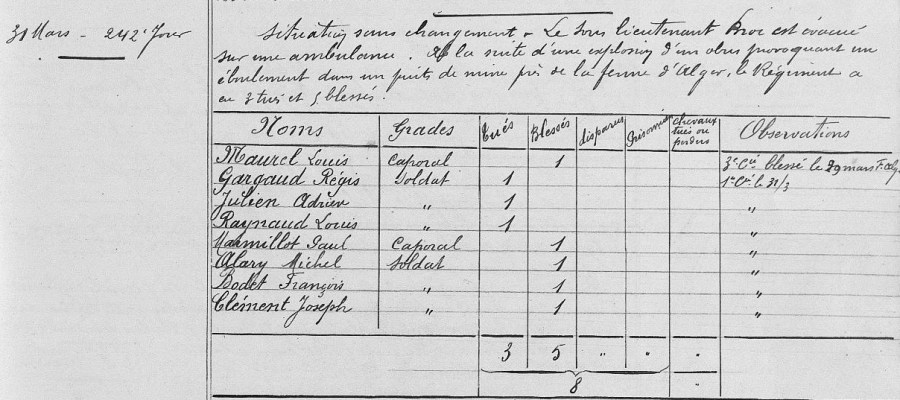 31 Mars - 242e Jour
Situation sans changement - Le sous lieutenant est évacué
sur une ambulance. A la suite d'une explosion d'un obus provoquant un
éboulement dans un puits de mine près de la ferme d'Alger, le Régiment a
eu 3 tués et 5 blessés.
Noms Grades Tués Blessés disparus Prisonniers chevaux tués ou perdus Observations
Maurel Louis Caporal 1 3e Cie blessé le 29 mars F. Alg.
Gargaud Régis Soldat 1 1e Cie le 31/3
Julien Adrien " 1 "
Raynaud Louis " 1 "
Marmillot Paul Caporal 1 "
Alary Michel Soldat 1 "
Bodet François " 1 "
Clément Joseph " 1 "
3 5 " " "
8 "